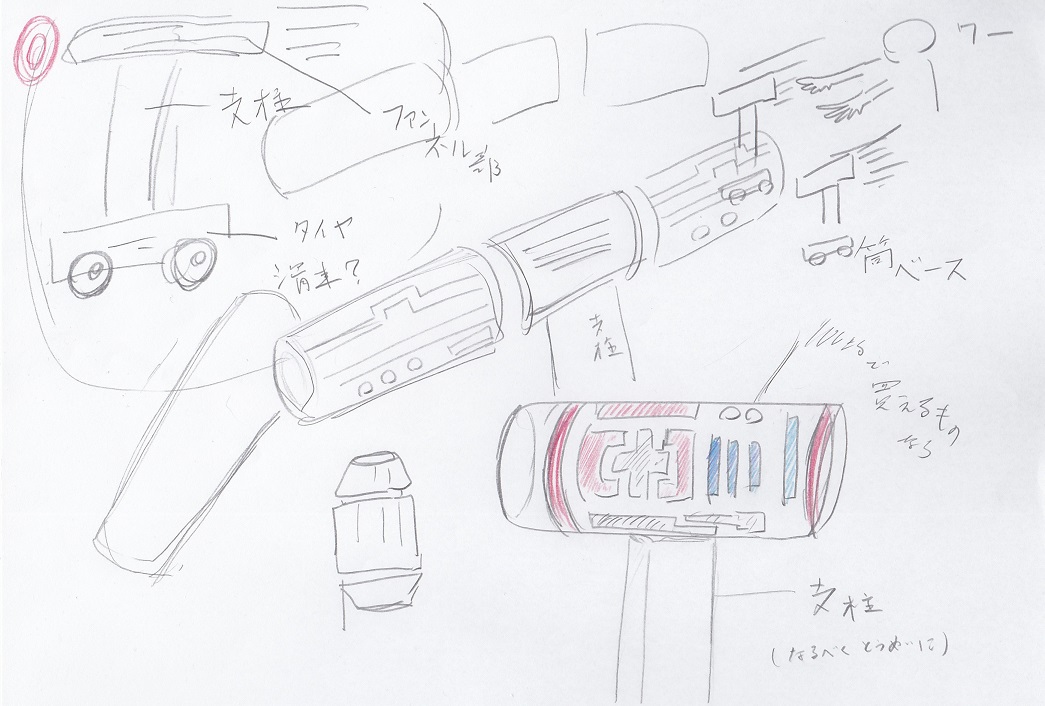 ワー
支柱
ファン
ネル部
タイヤ
滑車?
筒ベース
支柱
100均で
買えるもの
なら
支柱
(なるべくとうめいに)